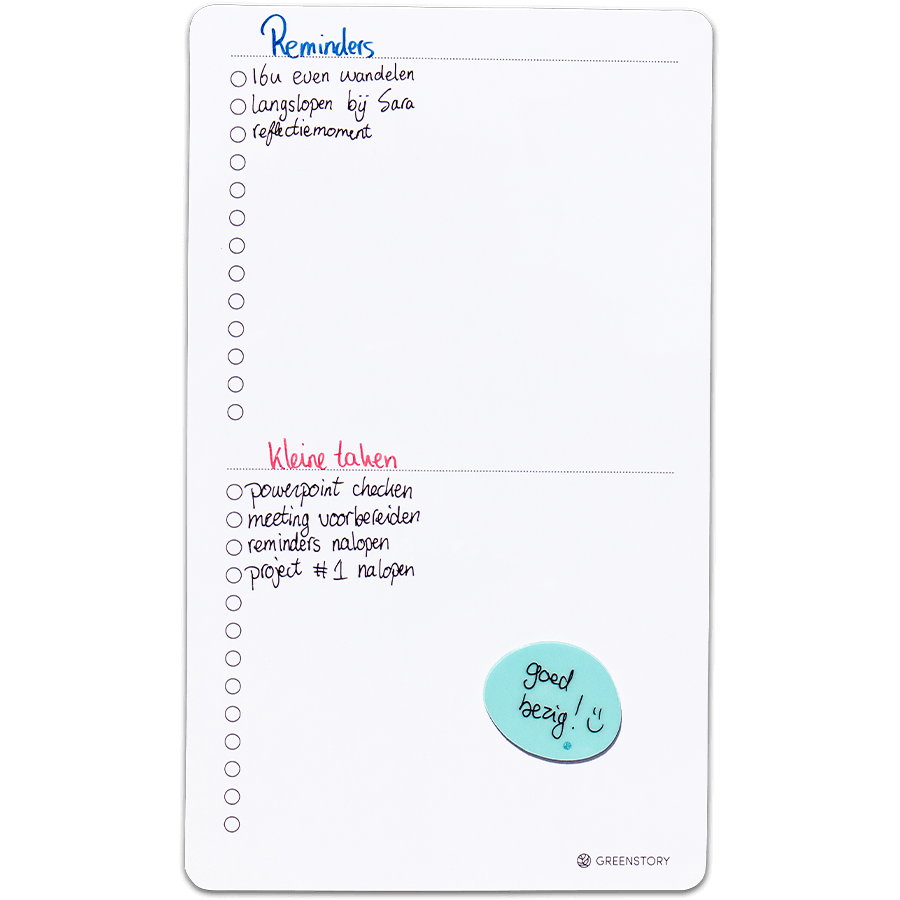 Reminders
16u even wandelen
langslopen bij Sara
reflectiemoment
Kleine taken
powerpoint checken
meeting voorbereiden
reminders nalopen
project #1 nalopen
goed
bezig! :)
GREENSTORY